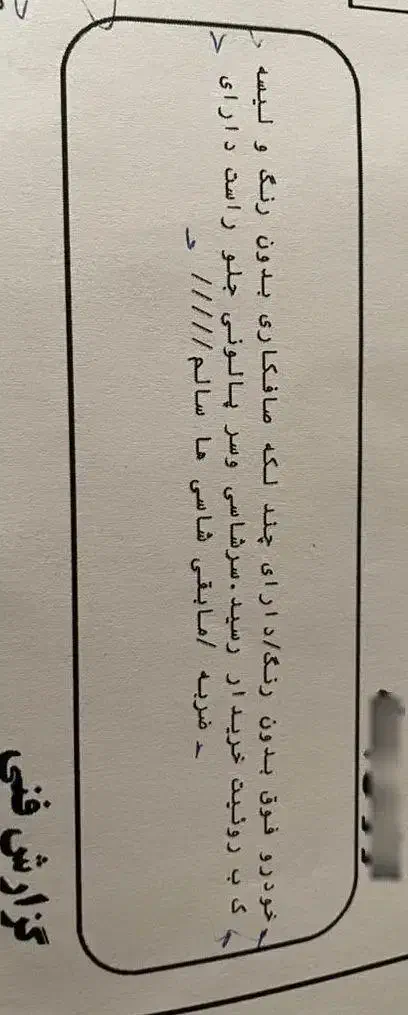 گزارش فنی
خودرو فوق بدون رنگ/دارای چند لکه صافکاری بدون رنگ و لیسه
ک ب روئیت خریدار رسید.سرشاسی وسر پالونی جلو راست دارای
ضربه /مابقی شاسی ها سالم/////